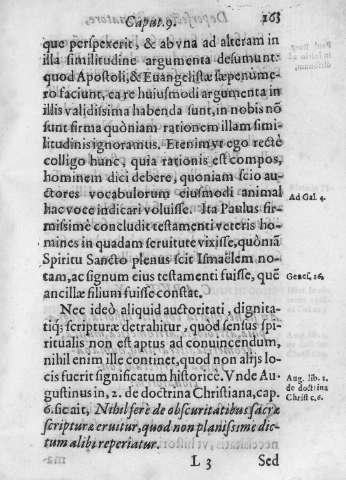 Caput. 9. 163
que perspexerit, & ab vna ad alteram in
illa similitudine argumenta desumunt:
quod Apostoli, & Euangelistæ sæpenume-
ro faciunt, ea re huiusmodi argumenta in
illis validissima habenda sunt, in nobis nō
sunt firma quòniam rationem illam simi-
litudinis ignoramus. Etenim vt ego rectè
colligo hunc, quia rationis est compos,
hominem dici debere, quoniam scio au-
ctores vocabulorum eiusmodi animal
hac voce indicari voluisse. Ita Paulus fir-
Ad Gal. 4.
missimè concludit testamenti veteris ho-
mines in quadam seruitute vixisse, quòniā
Spiritu Sancto plenus scit Ismaëlem no-
tam, ac signum eius testamenti fuisse, quē
Genes. 16.
ancillæ filium fuisse constat.
Nec ideò aliquid auctoritati, dignita-
tiq; scripturæ detrahitur, quòd sensus spi-
ritualis non est aptus ad conuincendum,
nihil enim ille continet, quod non alijs lo-
cis fuerit significatum historicè. Vnde Au-
Aug. lib. 2.
gustinus in, 2. de doctrina Christiana, cap.
de doctrina
6. sic ait, Nihil ferè de obscuritatibus sacræ
Christ c. 6.
scripturæ eruitur, quod non planissimè dic-
tum alibi reperiatur.
L 3 Sed